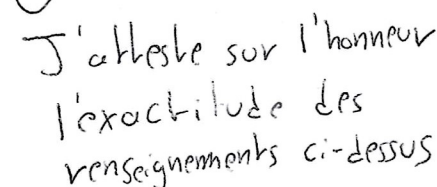 J'atteste sur l'honneur
l'exactitude des
renseignements ci-dessus